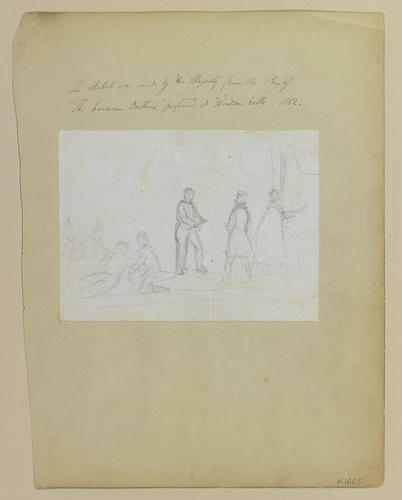 This sketch was made by Her Majesty from the Play of
"The Corsican Brothers" performed at Windsor Castle 1852.
K.1665